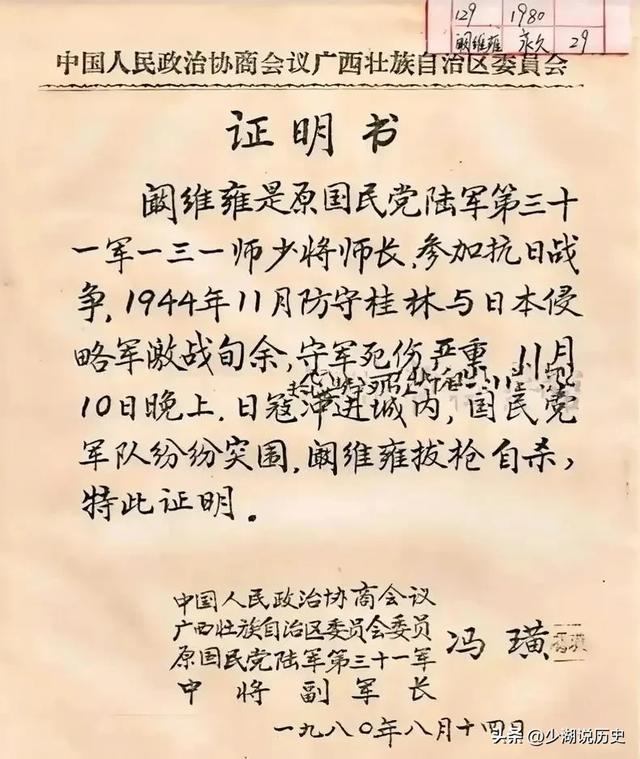 129 1980
阚维雍 永久 29
中国人民政治协商会议广西壮族自治区委員会
证明书
阚维雍是原国民党陆军第三十
一军一三一师少将师长,参加抗日战
争,1944年11月防守桂林与日本侵
略军激战旬余,守军死伤严重,11月
10日晚上,日寇冲进城内,国民党
军队纷纷突围,阚维雍拔枪自杀,
特此证明.
中国人民政治协商会议
广西壮族自治区委员会委员
原国民党陆军第三十一军
中将副军长
冯璜
一九八〇年八月十四日
头条@少湖说历史